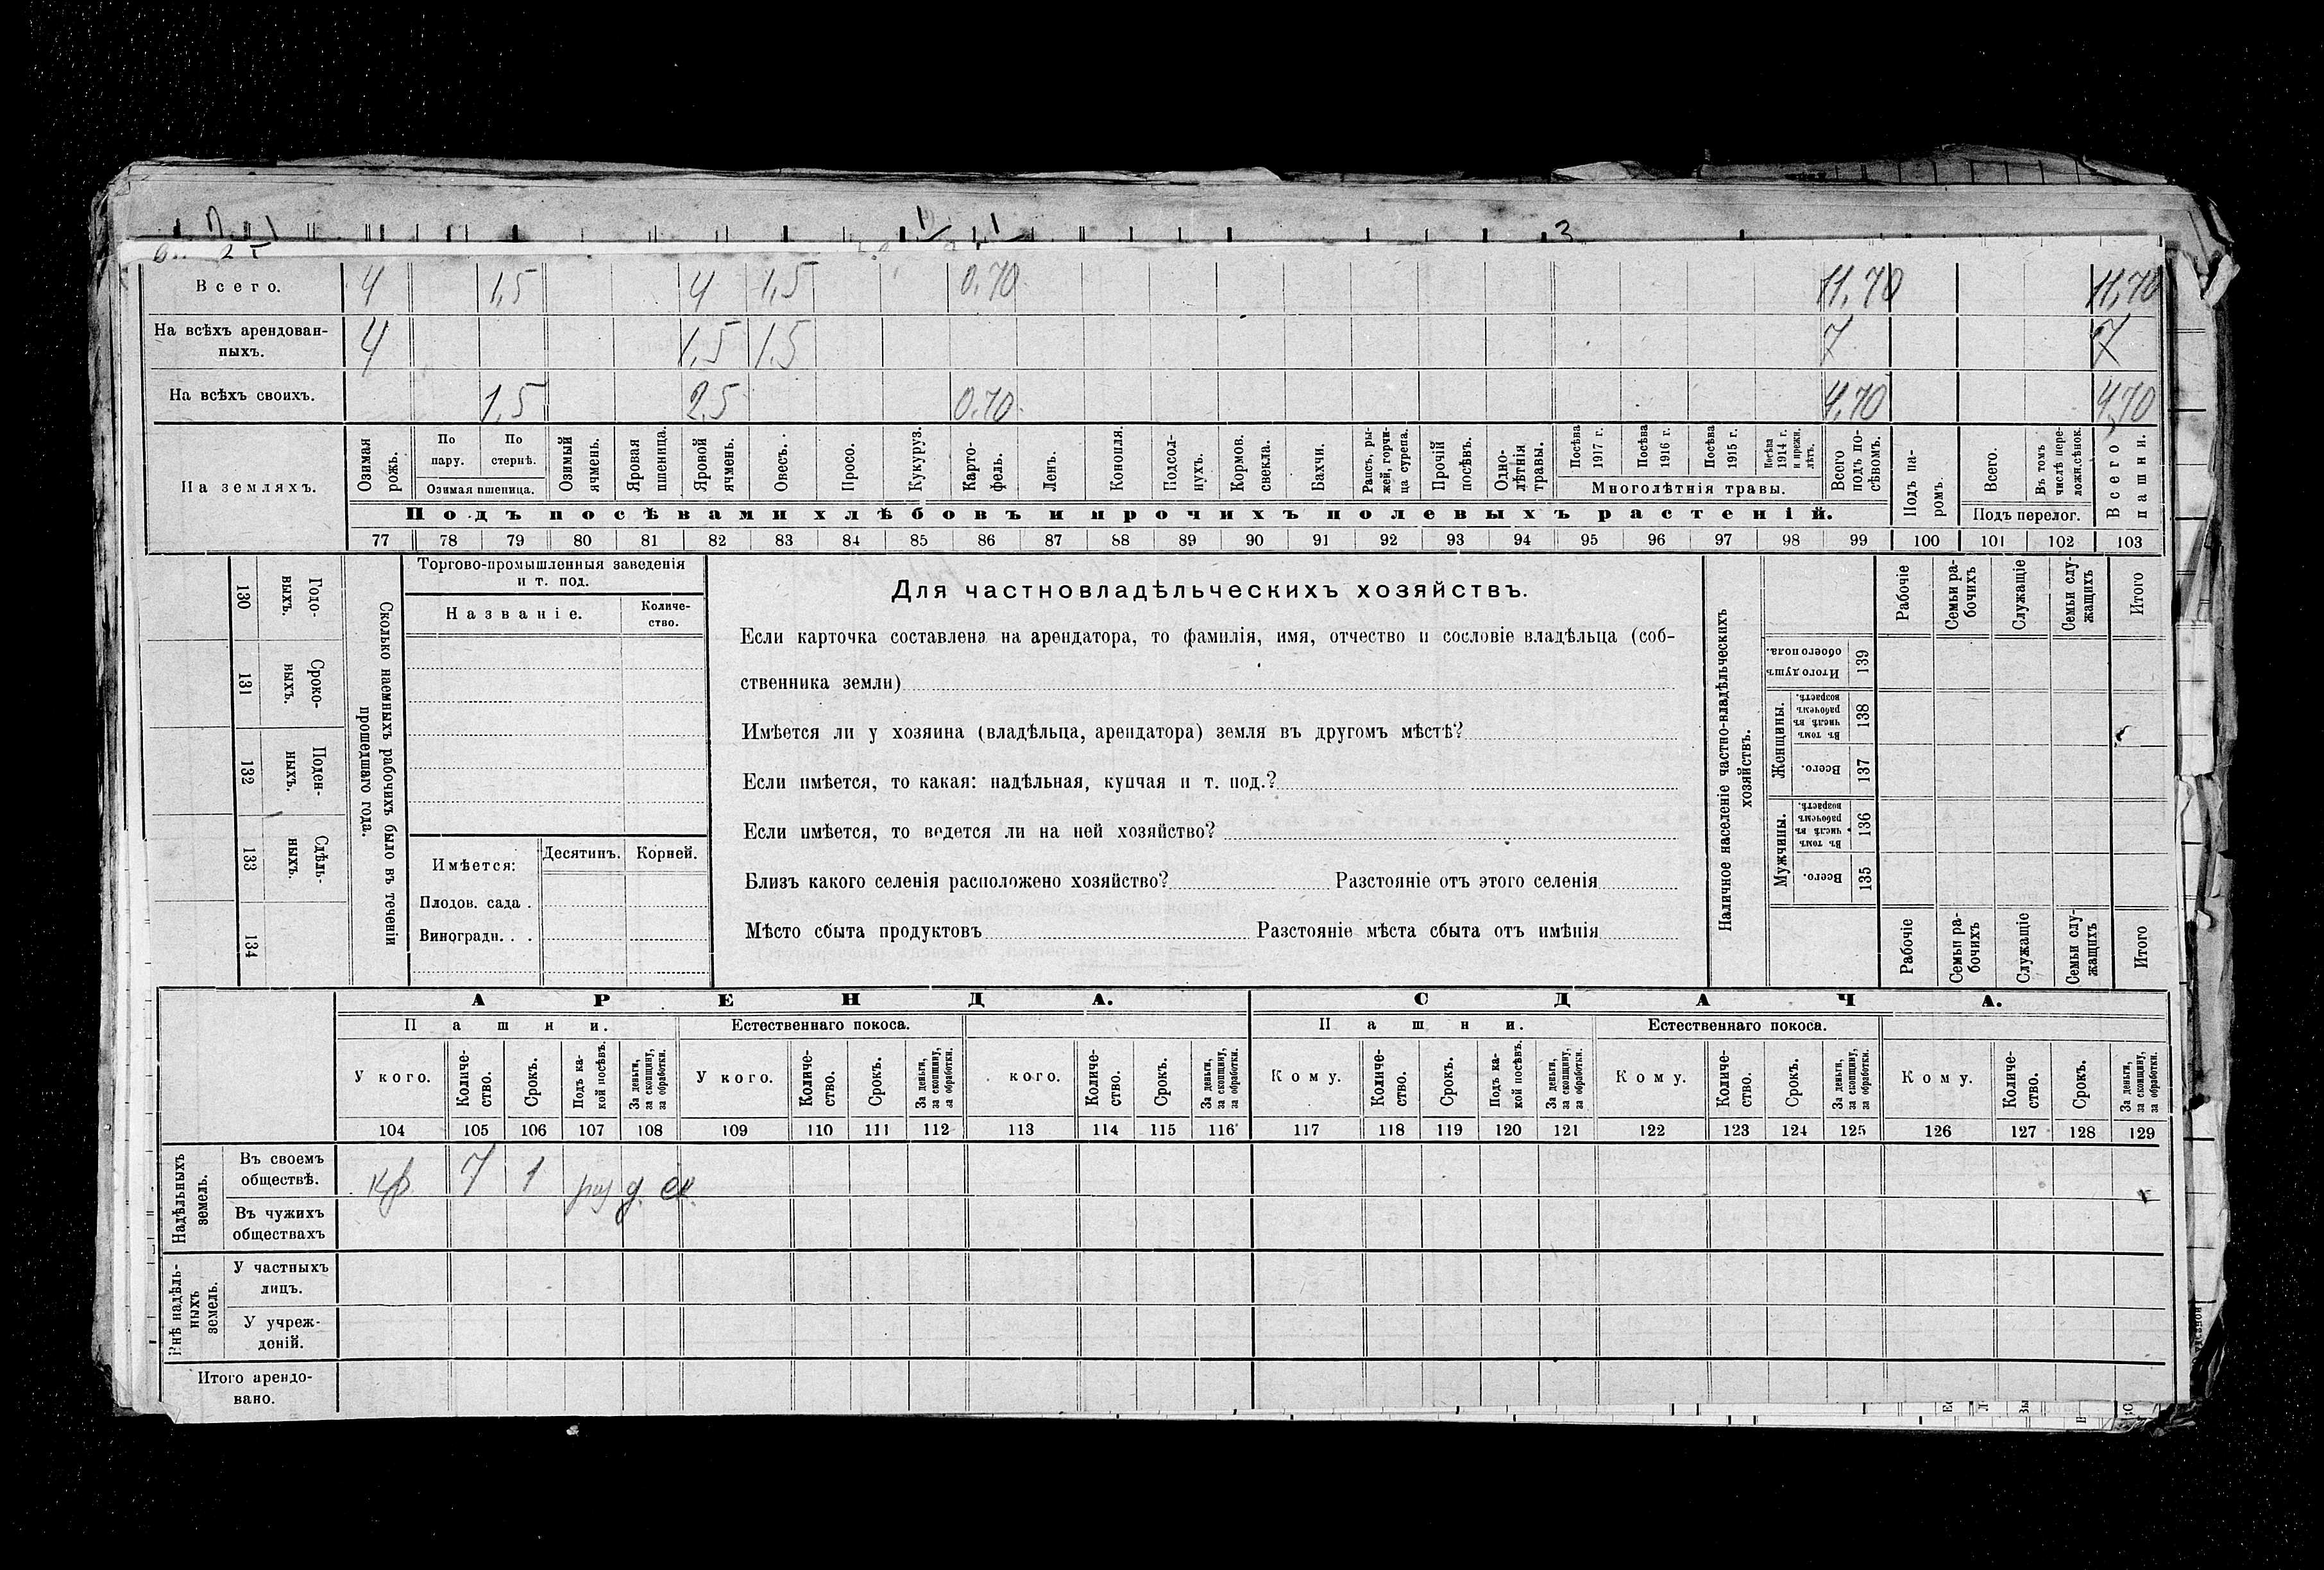 Всего. 4 1,5 4 1,5 0.70 11,70 11,70
На всѣхъ арендован-
ныхъ. 4 1,5 1,5 7 7
На всѣхъ своихъ. 1,5 2,5 0.70 4,70 4,70
На земляхъ.
Озимая рожь.
По пару.
По стернѣ.
Озимая пшеница.
Озимый ячмень.
Яровая пшеница.
Яровой ячмень.
Овесъ.
Просо.
Кукуруз.
Карто-
фель.
Ленъ.
Конопля.
Подсол-
нухъ.
Кормов. свекла.
Бахчи.
Рапсъ, ры-
жей, горчи-
ца сурепа.
Прочій посѣвъ.
Одно-
лѣтнія травы.
Посѣва 1917 г.
Посѣва 1916 г.
Посѣва 1915 г.
Посѣва 1914 г. и прежн. лѣтъ.
Многолѣтнія травы.
Всего подъ по-
сѣвомъ.
Подъ па-
ромъ.
Всего.
Въ томъ числѣ пере-
ложн. сѣнок.
Подъ перелог.
Всего пашни.
Подъ посѣвами хлѣбовъ и прочихъ полевыхъ растеній.
77 78 79 80 81 82 83 84 85 86 87 88 89 90 91 92 93 94 95 96 97 98 99 100 101 102 103
130 Годо-
выхъ.
131 Сроко-
выхъ.
132 Поден-
ныхъ.
133 Сдѣль-
ныхъ.
134
Сколько наемныхъ рабочихъ было въ теченіи
прошедшаго года.
Торгово-промышленныя заведенія
и т. под.
Названіе. Количе-
ство.
Имѣется: Десятин. Корней.
Плодов. сада .
Виноградн. . .
Для частновладѣльческихъ хозяйствъ.
Если карточка составлена на арендатора, то фамилія, имя, отчество и сословіе владѣльца (соб-
ственника земли)
Имѣется ли у хозяина (владѣльца, арендатора) земля въ другомъ мѣстѣ?
Если имѣется, то какая: надѣльная, купчая и т. под.?
Если имѣется, то ведется ли на ней хозяйство?
Близъ какого селенія расположено хозяйство? Разстояніе отъ этого селенія
Мѣсто сбыта продуктовъ Разстояніе мѣста сбыта отъ имѣнія
Наличное населеніе частно-владѣльческихъ
хозяйствъ.
Рабочіе
Семьи ра-
бочихъ
Служащіе
Семьи слу-
жащихъ
Итого
Итого душъ обоего пола. 139
Женщины.
Въ томъ числѣ въ рабочемъ возрастѣ. 138
Всего. 137
Мужчины.
Въ томъ числѣ въ рабочемъ возрастѣ. 136
Всего. 135
Рабочіе
Семьи ра-
бочихъ
Служащіе
Семьи слу-
жащихъ
Итого
АРЕНДА. СДАЧА.
Пашни. Естественнаго покоса. Пашни. Естественнаго покоса.
У кого.
Количе-
ство.
Срокъ.
Подъ ка-
кой посѣвъ.
За деньги, за скопщину, за обработки.
У кого.
Количе-
ство.
Срокъ.
За деньги, за скопщину, за обработки.
кого.
Количе-
ство.
Срокъ.
За деньги, за скопщину, за обработки.
Кому.
Количе-
ство.
Срокъ.
Подъ ка-
кой посѣвъ.
За деньги, за скопщину, за обработки.
Кому.
Количе-
ство.
Срокъ.
За деньги, за скопщину, за обработки.
Кому.
Количе-
ство.
Срокъ.
За деньги, за скопщину, за обработки.
104 105 106 107 108 109 110 111 112 113 114 115 116 117 118 119 120 121 122 123 124 125 126 127 128 129
Надѣльныхъ земель.
Въ своемъ
обществѣ. кр. 7 1
Въ чужихъ
обществахъ
Внѣ надѣль-
ныхъ земель.
У частныхъ
лицъ.
У учреж-
деній.
Итого арендо-
вано.